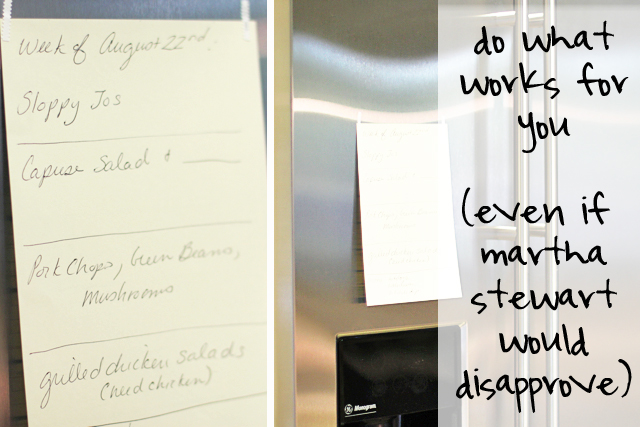 Week of August 22nd:
Sloppy Jos
Capuse Salad +
Pork Chops, Green Beans,
Mushrooms
grilled chicken salads
(need chicken)
do what
works for
you
(even if
martha
stewart
would
disapprove)
GE Monogram